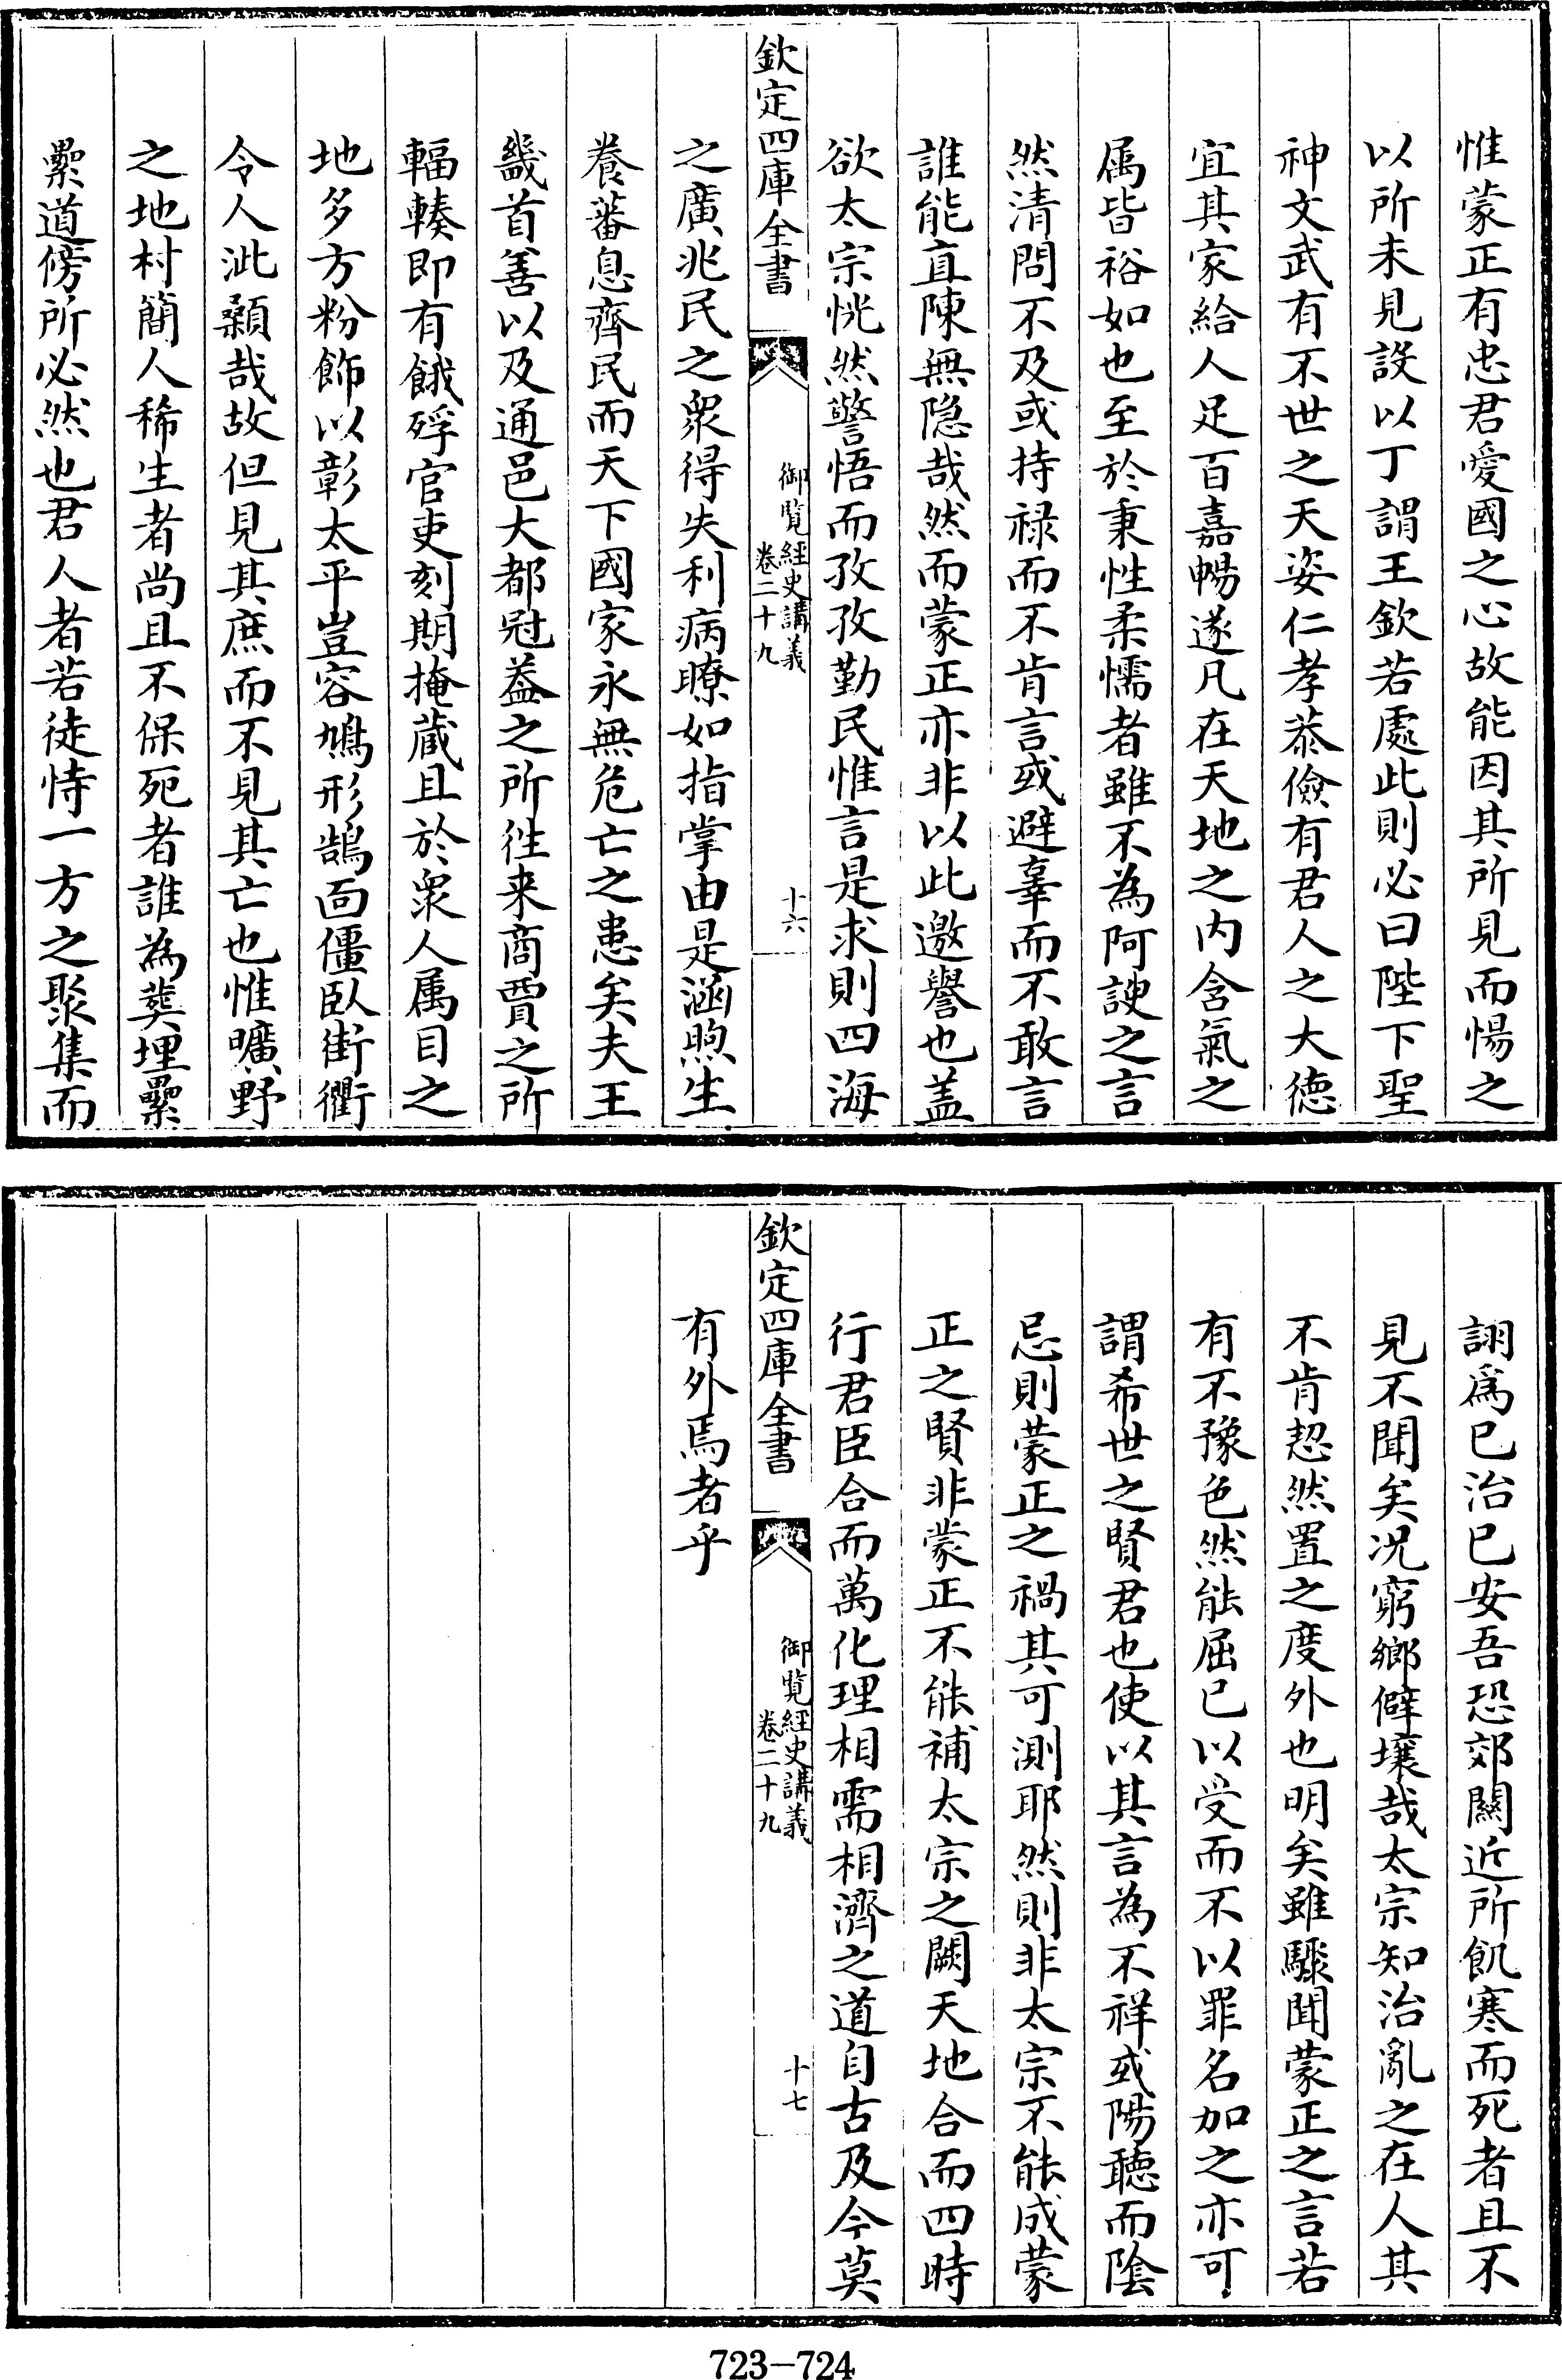 惟蒙正有忠君愛國之心故能因其所見而惕之
以所未見設以丁謂王欽若處此則必曰陛下聖
神文武有不世之天姿仁孝恭儉有君人之大德
宜其家給人足百嘉暢遂凡在天地之内含氣之
属皆裕如也至於秉性柔懦者雖不為阿諛之言
然清問不及或持祿而不肯言或避辜而不敢言
誰能直陳無隐哉然而蒙正亦非以此邀譽也盖
欲太宗恍然警悟而孜孜勤民惟言是求則四海
欽定四庫全書
御覧經史講義
卷二十九
十六
之廣兆民之衆得失利病瞭如指掌由是涵煦生
養蕃息齊民而天下國家永無危亡之患矣夫王
畿首善以及通邑大都冠葢之所徃来商賈之所
輻輳即有餓殍官吏刻期掩蔵且於衆人属目之
地多方粉飾以彰太平豈容鳩形鵠面僵臥街衢
令人泚顙哉故但見其庶而不見其亡也惟曠野
之地村簡人稀生者尚且不保死者誰為葬埋纍
纍道傍所必然也君人者若徒恃一方之聚集而
詡爲已治已安吾恐郊關近所飢寒而死者且不
見不聞矣况窮鄉僻壤哉太宗知治亂之在人其
不肯恝然置之度外也明矣雖驟聞蒙正之言若
有不豫色然能屈已以受而不以罪名加之亦可
謂希世之賢君也使以其言為不祥或陽聽而陰
忌則蒙正之禍其可測耶然則非太宗不能成蒙
正之賢非蒙正不能補太宗之闕天地合而四時
行君臣合而萬化理相需相濟之道自古及今莫
欽定四庫全書
御覧經史講義
卷二十九
十七
有外焉者乎
723-724